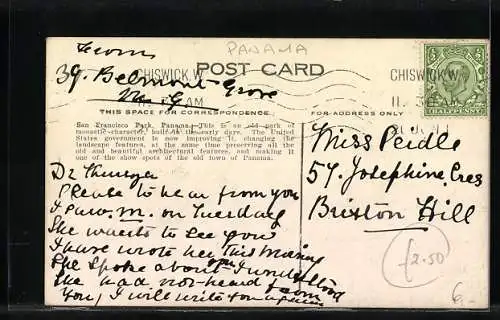 PANAMA
From
39, Belmont Grove
CHISWICK. W.
POST CARD
CHISWICK. W.
11. 30 AM
AM
THIS SPACE FOR CORRESPONDENCE.
FOR ADDRESS ONLY
San Francisco Park, Panama.—This is an old park of
monastic character, built in the early days. The United
States government is now improving it, changing the
landscape features, at the same time preserving all the
old and beautiful architectural features, and making it
one of the show spots of the old town of Panama.
Miss Peidle
57, Josephine, Cres
Brixton Hill
Dr
Please to hear from you
I saw. m. on Tuesday
She wants to see you
I have wrote her this morning
She spoke about you
She had not heard from
You, I will write you again
£2.50
6-